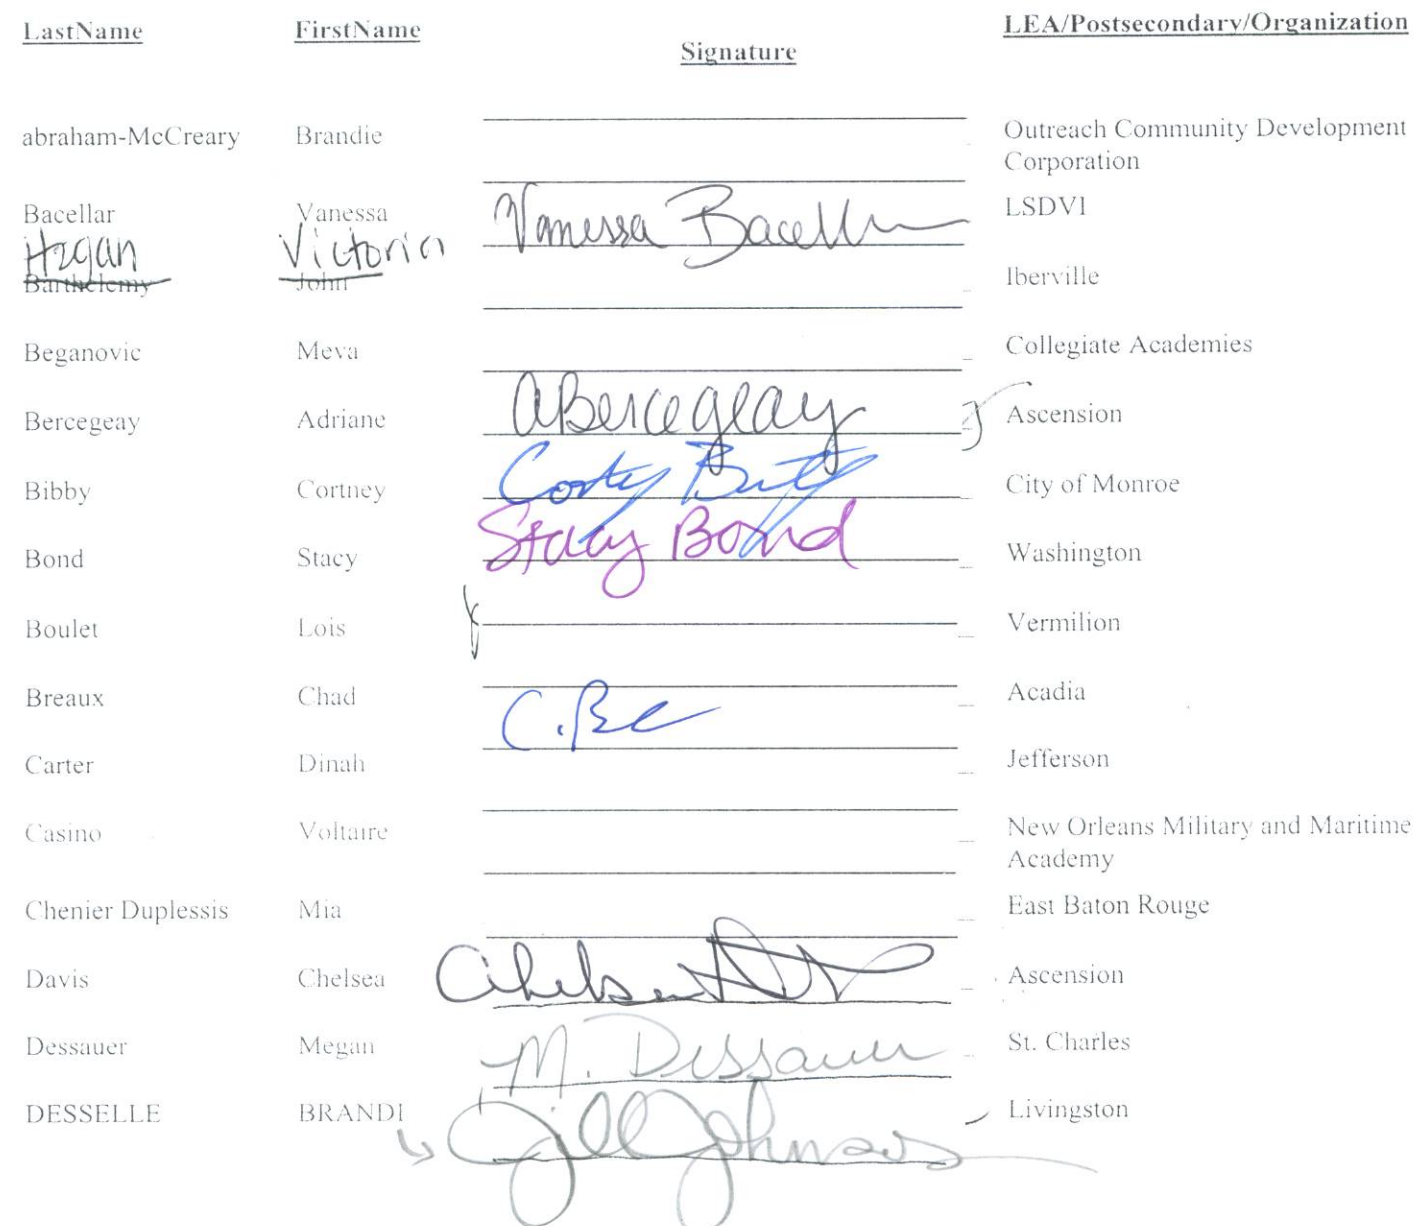 LastName FirstName Signature LEA/Postsecondary/Organization
abraham-McCreary Brandie Outreach Community Development
Corporation
Bacellar Vanessa Vanessa Bacellar LSDVI
Hagan Victoria
Barthelemy John Iberville
Beganovic Meva Collegiate Academies
Bercegeay Adriane ABercegeay Ascension
Bibby Cortney City of Monroe
Bond Stacy Stacy Bond Washington
Boulet Lois Vermilion
Breaux Chad Acadia
Carter Dinah Jefferson
Casino Voltaire New Orleans Military and Maritime
Academy
Chenier Duplessis Mia East Baton Rouge
Davis Chelsea Ascension
Dessauer Megan M. Dessauer St. Charles
DESSELLE BRANDI Jill Johnson Livingston